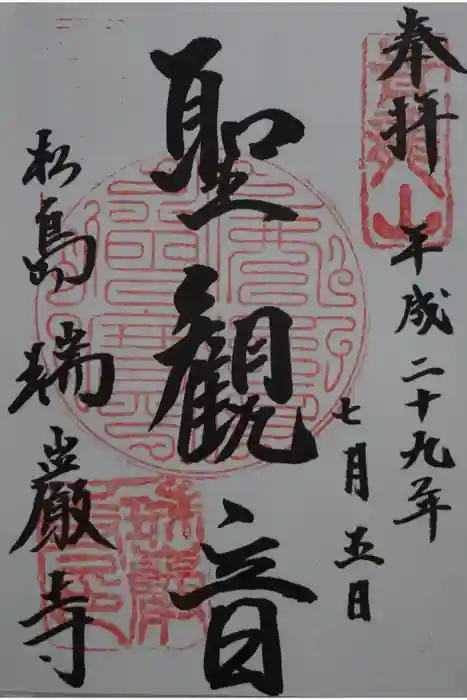 奉拝
平成二十九年
七月五日
聖観音
松島瑞巌寺